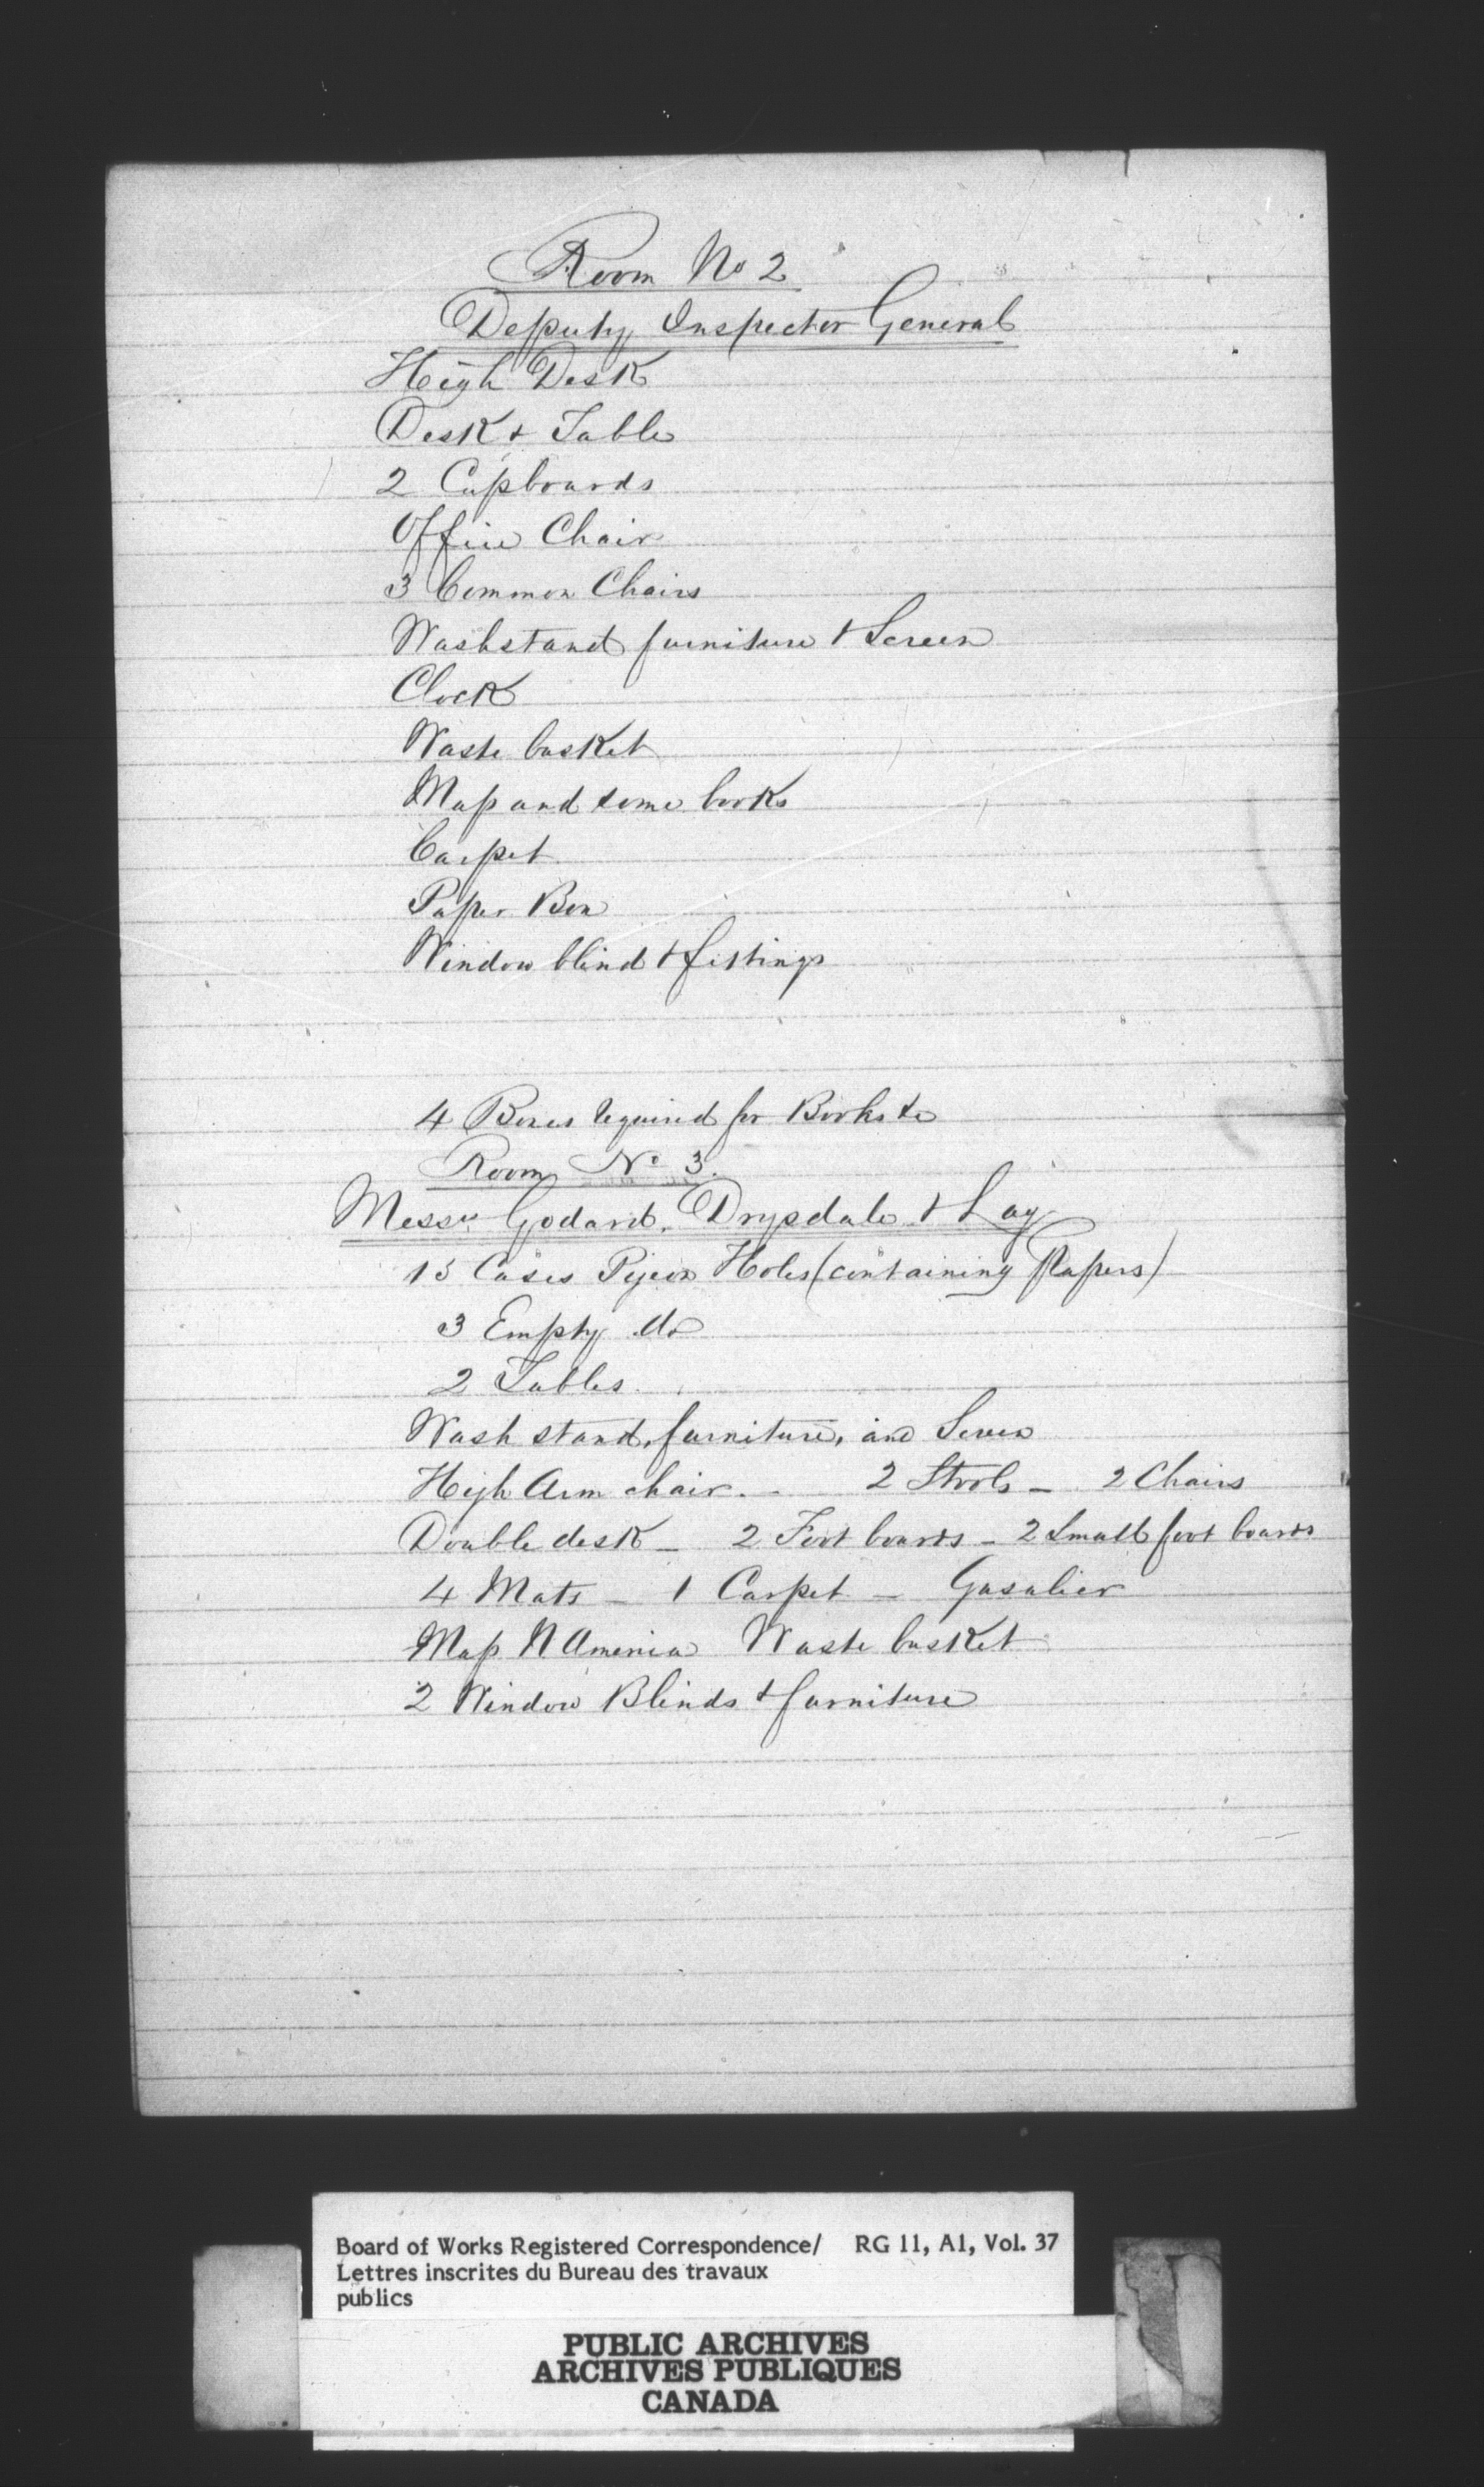 Room No 2
Deputy Inspector General
High Desk
Desk & Table
2 Cupboards
Office Chair
3 Common Chairs
Washstand furniture & Screen
Clock
Waste basket
Map and some books
Carpet
Paper Box
Window blind & fittings
4 Boxes required for Books &c
Room No 3.
Messrs Godard, Drysdale & Lay
13 Cases Pigeon Holes (containing Papers)
3 Empty do
2 Tables.
Wash stand, furniture, and Screen
High Arm chair. - 2 Stools - 2 Chairs
Double desk - 2 Foot boards - 2 Small foot boards
4 Mats - 1 Carpet - Gasalier
Map N America Waste basket
2 Window Blinds & furniture
Board of Works Registered Correspondence/ RG 11, A1, Vol. 37
Lettres inscrites du Bureau des travaux
publics
PUBLIC ARCHIVES
ARCHIVES PUBLIQUES
CANADA